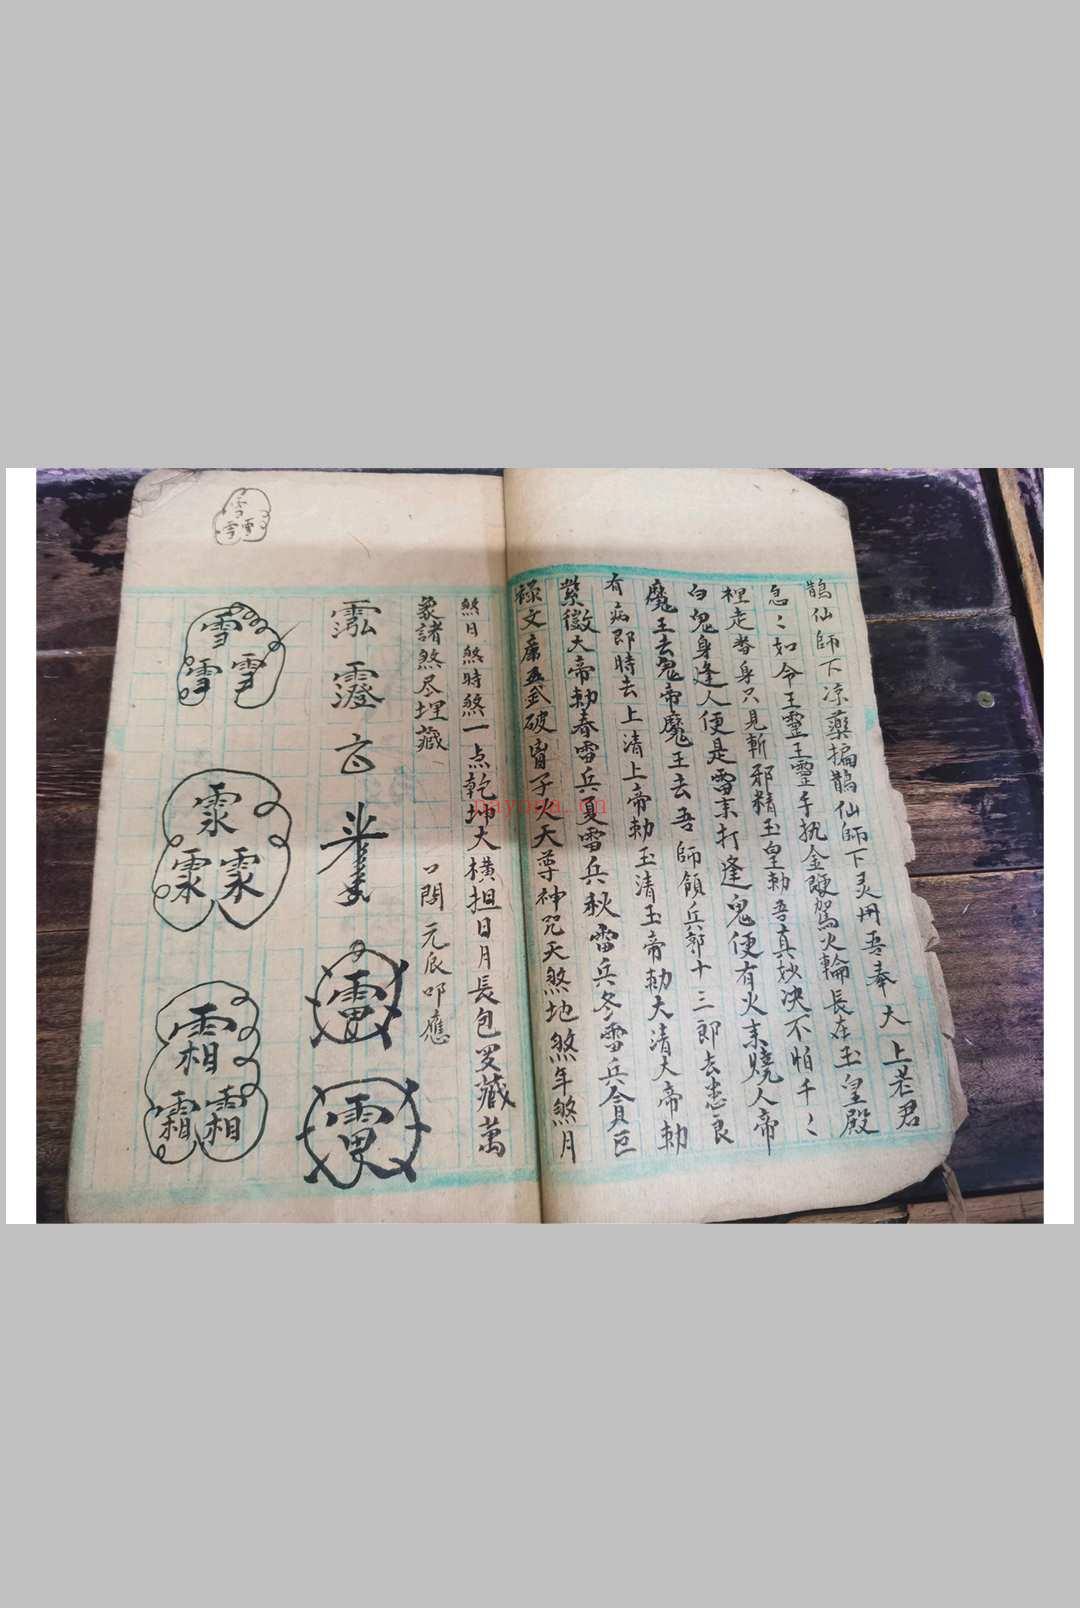 鵲仙師下凉藥揙鵲仙師下灵丹吾奉大上老君
急〻如令王靈王靈手执金鞭駕火輪長在玉皇殿
裡走番身只見斬邪精玉皇勅吾真妙决不怕千〻
白鬼身逢人便是雷来打逢鬼便有火来燒人帝
魔王去鬼帝魔王去吾師領兵郭十三郎去患良
有病即時去上清上帝勅玉清玉帝勅大清大帝勅
紫微大帝勅春雷兵夏雪兵秋雷兵冬雪兵貪巨
禄文廉武破甯子火天尊神咒天煞地煞年煞月
煞日煞時煞一点乾坤大横担日月長包罗藏萬
象諸煞尽埋藏 口問元辰叩應
霐
靈
雷
電
雪
雪雪
雪
雪雪
霥
霥霥
霜
霜霜
nayona.cn